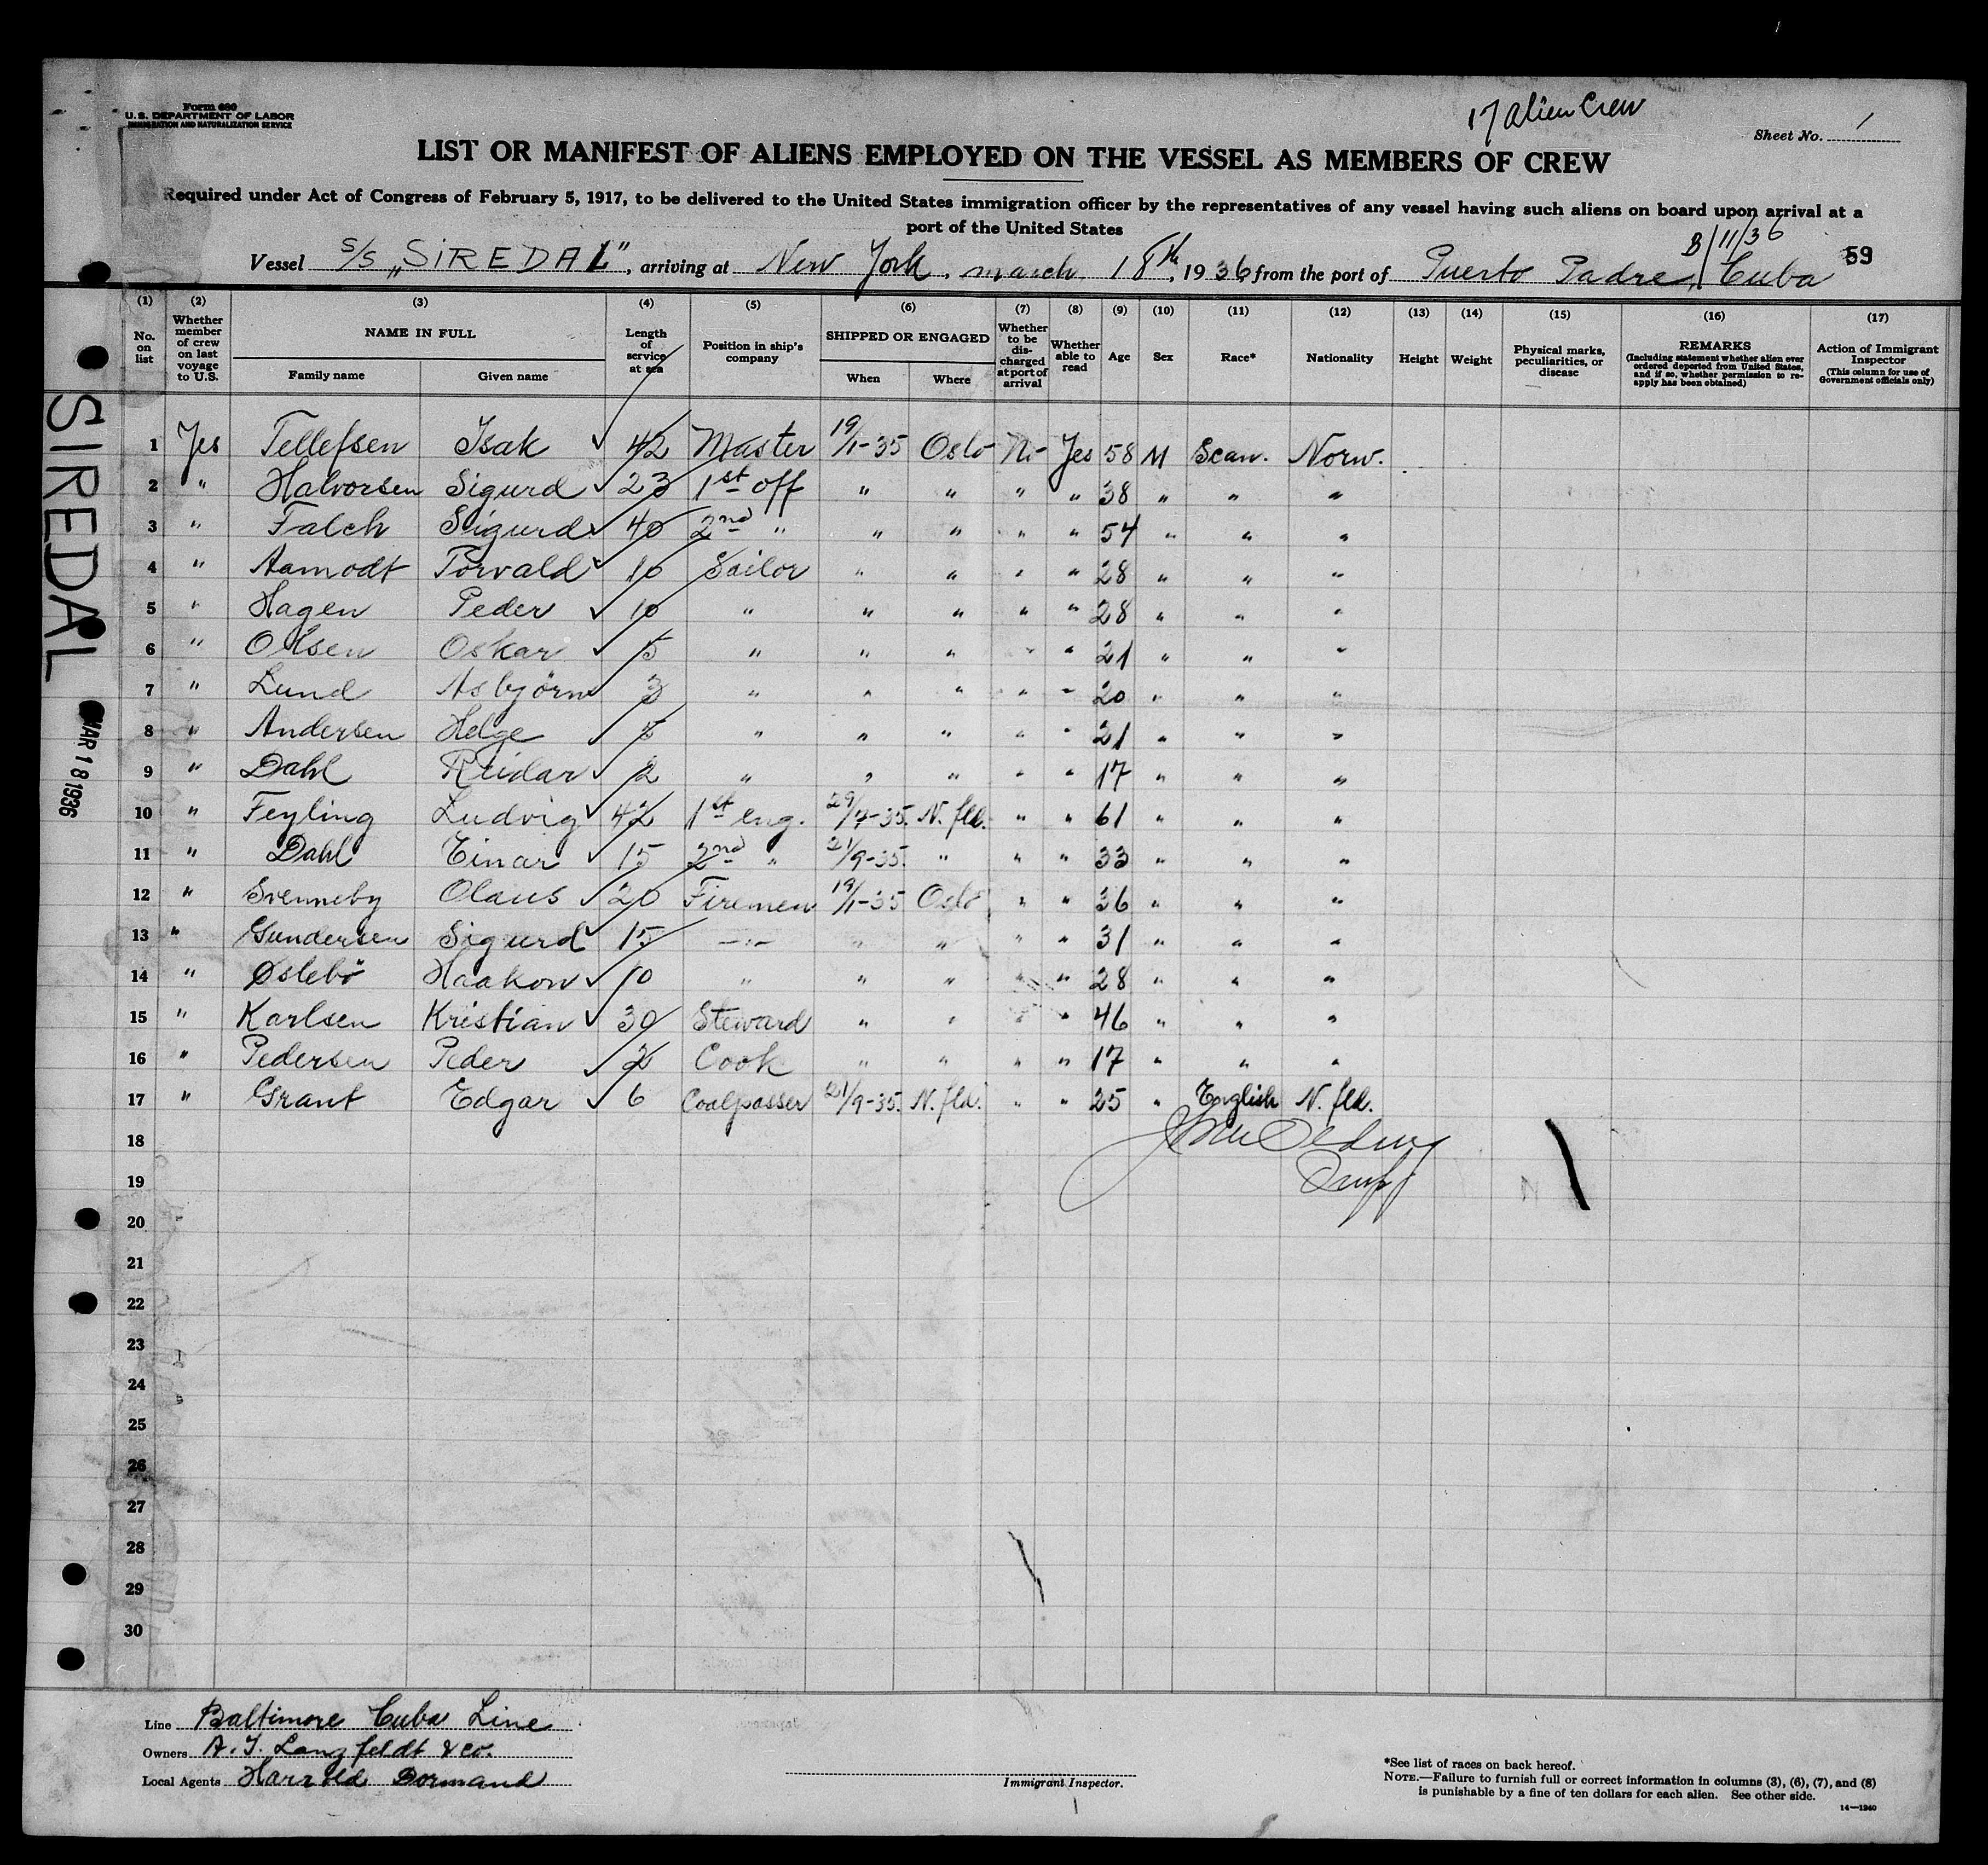 Form 680
U.S. DEPARTMENT OF LABOR
IMMIGRATION AND NATURALIZATION SERVICE
17 alien Crew
Sheet No. 1
LIST OR MANIFEST OF ALIENS EMPLOYED ON THE VESSEL AS MEMBERS OF CREW
Required under Act of Congress of February 5, 1917, to be delivered to the United States immigration officer by the representatives of any vessel having such aliens on board upon arrival at a
port of the United States
B/11/36
59
Vessel S/S „SIREDAL", arriving at New York, march 18th, 1936, from the port of Puerto Padre, Cuba
(1) (2) (3) (4) (5) (6) (7) (8) (9) (10) (11) (12) (13) (14) (15) (16) (17)
No. on list
Whether member of crew on last voyage to U.S.
NAME IN FULL
Family name Given name
Length of service at sea
Position in ship's company
SHIPPED OR ENGAGED
When Where
Whether to be discharged at port of arrival
Whether able to read
Age
Sex
Race*
Nationality
Height
Weight
Physical marks, peculiarities, or disease
REMARKS
(Including statement whether alien ever ordered deported from United States, and if so, whether permission to re-apply has been obtained)
Action of Immigrant Inspector
(This column for use of Government officials only)
1 Yes Tellefsen Isak ✓ 42 Master 19/1-35 Oslo No Yes 58 M Scan. Norw.
2 " Halvorsen Sigurd ✓ 23 1st off " " " " 38 " " "
3 " Falch Sigurd ✓ 40 2nd " " " " " 54 " " "
4 " Aamodt Torvald ✓ 10 Sailor " " " " 28 " " "
5 " Hagen Peder ✓ 10 " " " " " 28 " " "
6 " Olsen Oskar ✓ 5 " " " " " 21 " " "
7 " Lund Asbjörn ✓ 3 " " " " " 20 " " "
8 " Andersen Helge ✓ 5 " " " " " 21 " " "
9 " Dahl Reidar ✓ 2 " " " " " 17 " " "
10 " Feyling Ludvig ✓ 42 1st eng. 29/7-35. N. fld. " " 61 " " "
11 " Dahl Einar ✓ 15 2nd " 21/9-35. " " " 33 " " "
12 " Svenneby Olaus ✓ 20 Firemen 19/1-35 Oslo " " 36 " " "
13 " Gundersen Sigurd ✓ 15 —"— " " " " 31 " " "
14 " Øslebö Haakon ✓ 10 " " " " " 28 " " "
15 " Karlsen Kristian ✓ 30 Steward " " " " 46 " " "
16 " Pedersen Peder ✓ 2 Cook " " " " 17 " " "
17 " Grant Edgar ✓ 6 Coalpasser 21/9-35. N. fld. " " 25 " English N. fld.
18
19
20
21
22
23
24
25
26
27
28
29
30
SIREDAL
MAR 18 1936
Line Baltimore Cuba Line
Owners A. T. Langfeldt & Co.
Local Agents Harrold Dormand
Immigrant Inspector.
*See list of races on back hereof.
NOTE.—Failure to furnish full or correct information in columns (3), (6), (7), and (8)
is punishable by a fine of ten dollars for each alien. See other side.
14—1240